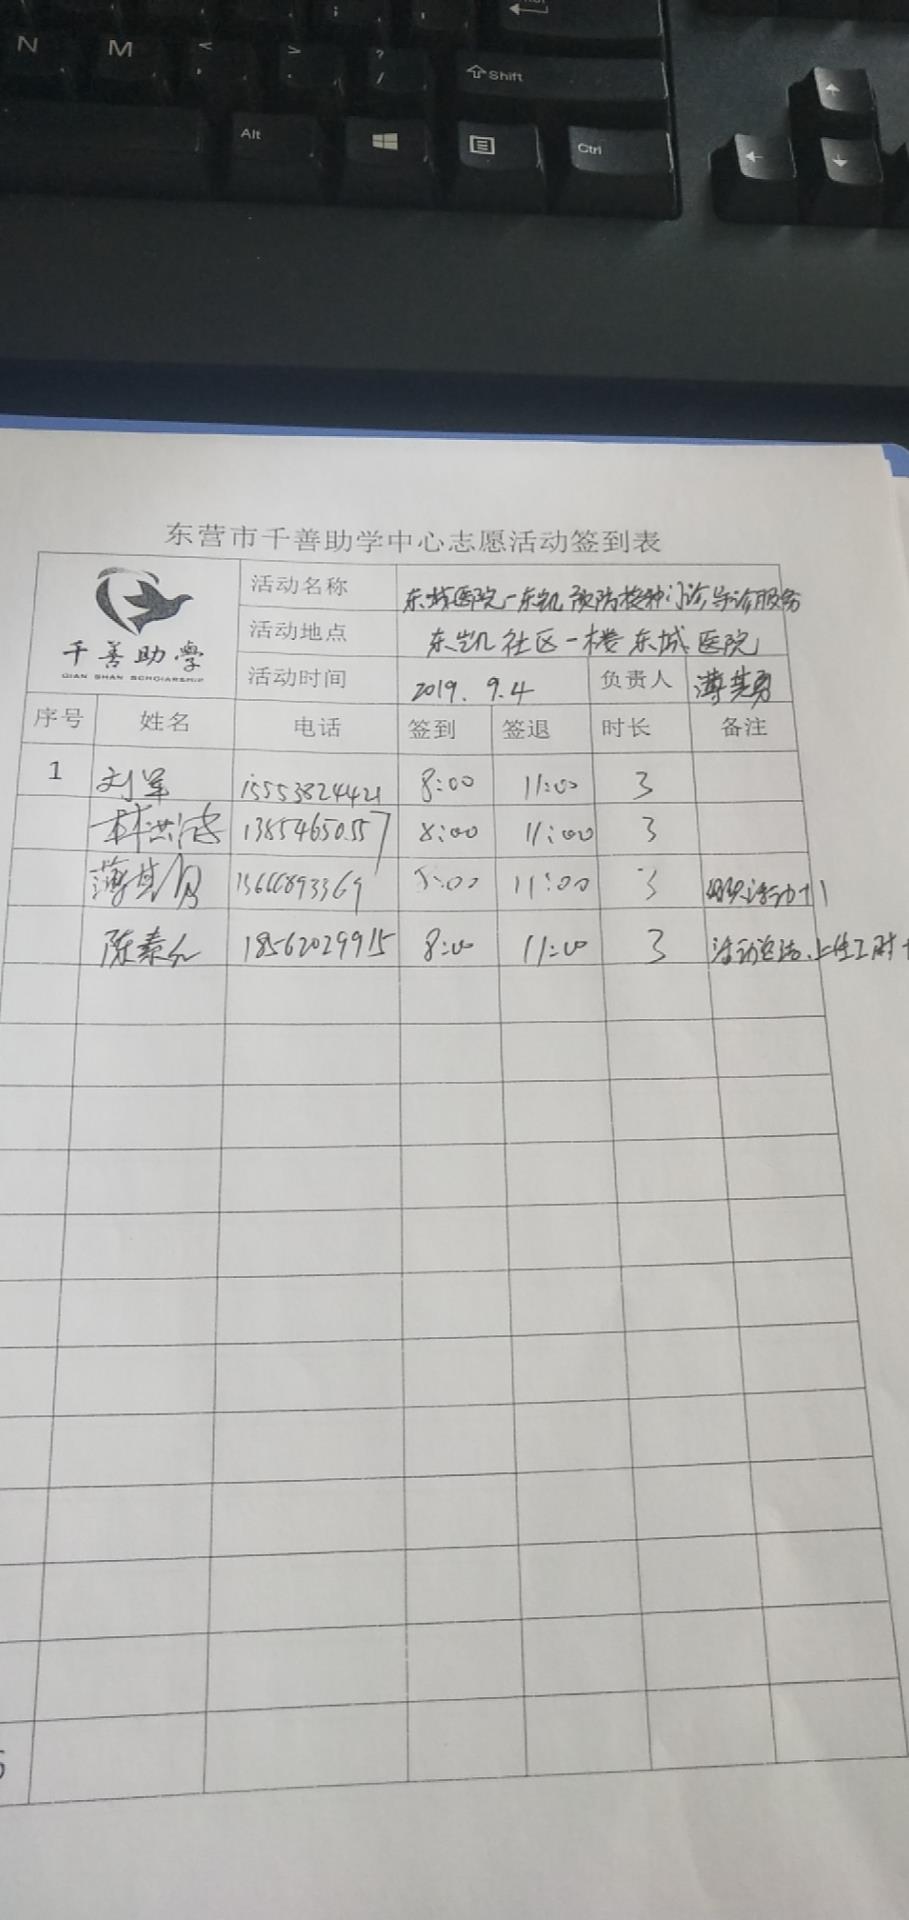 N M < , > . ? / ; ,
⇧Shift
Alt Ctrl
东营市千善助学中心志愿活动签到表
千善助学
QIAN SHAN SCHOLARSHIP
活动名称 东城医院-东凯预防接种门诊导诊服务
活动地点 东凯社区一楼东城医院
活动时间 2019.9.4 负责人 薄其勇
序号 姓名 电话 签到 签退 时长 备注
1 刘军 15553824421 8:00 11:00 3
林洪 13854650557 8:00 11:00 3
薄其 13666893369 8:00 11:00 3 组织活动+1
陈素 18562029915 8:00 11:00 3 活动总结、上传工时+